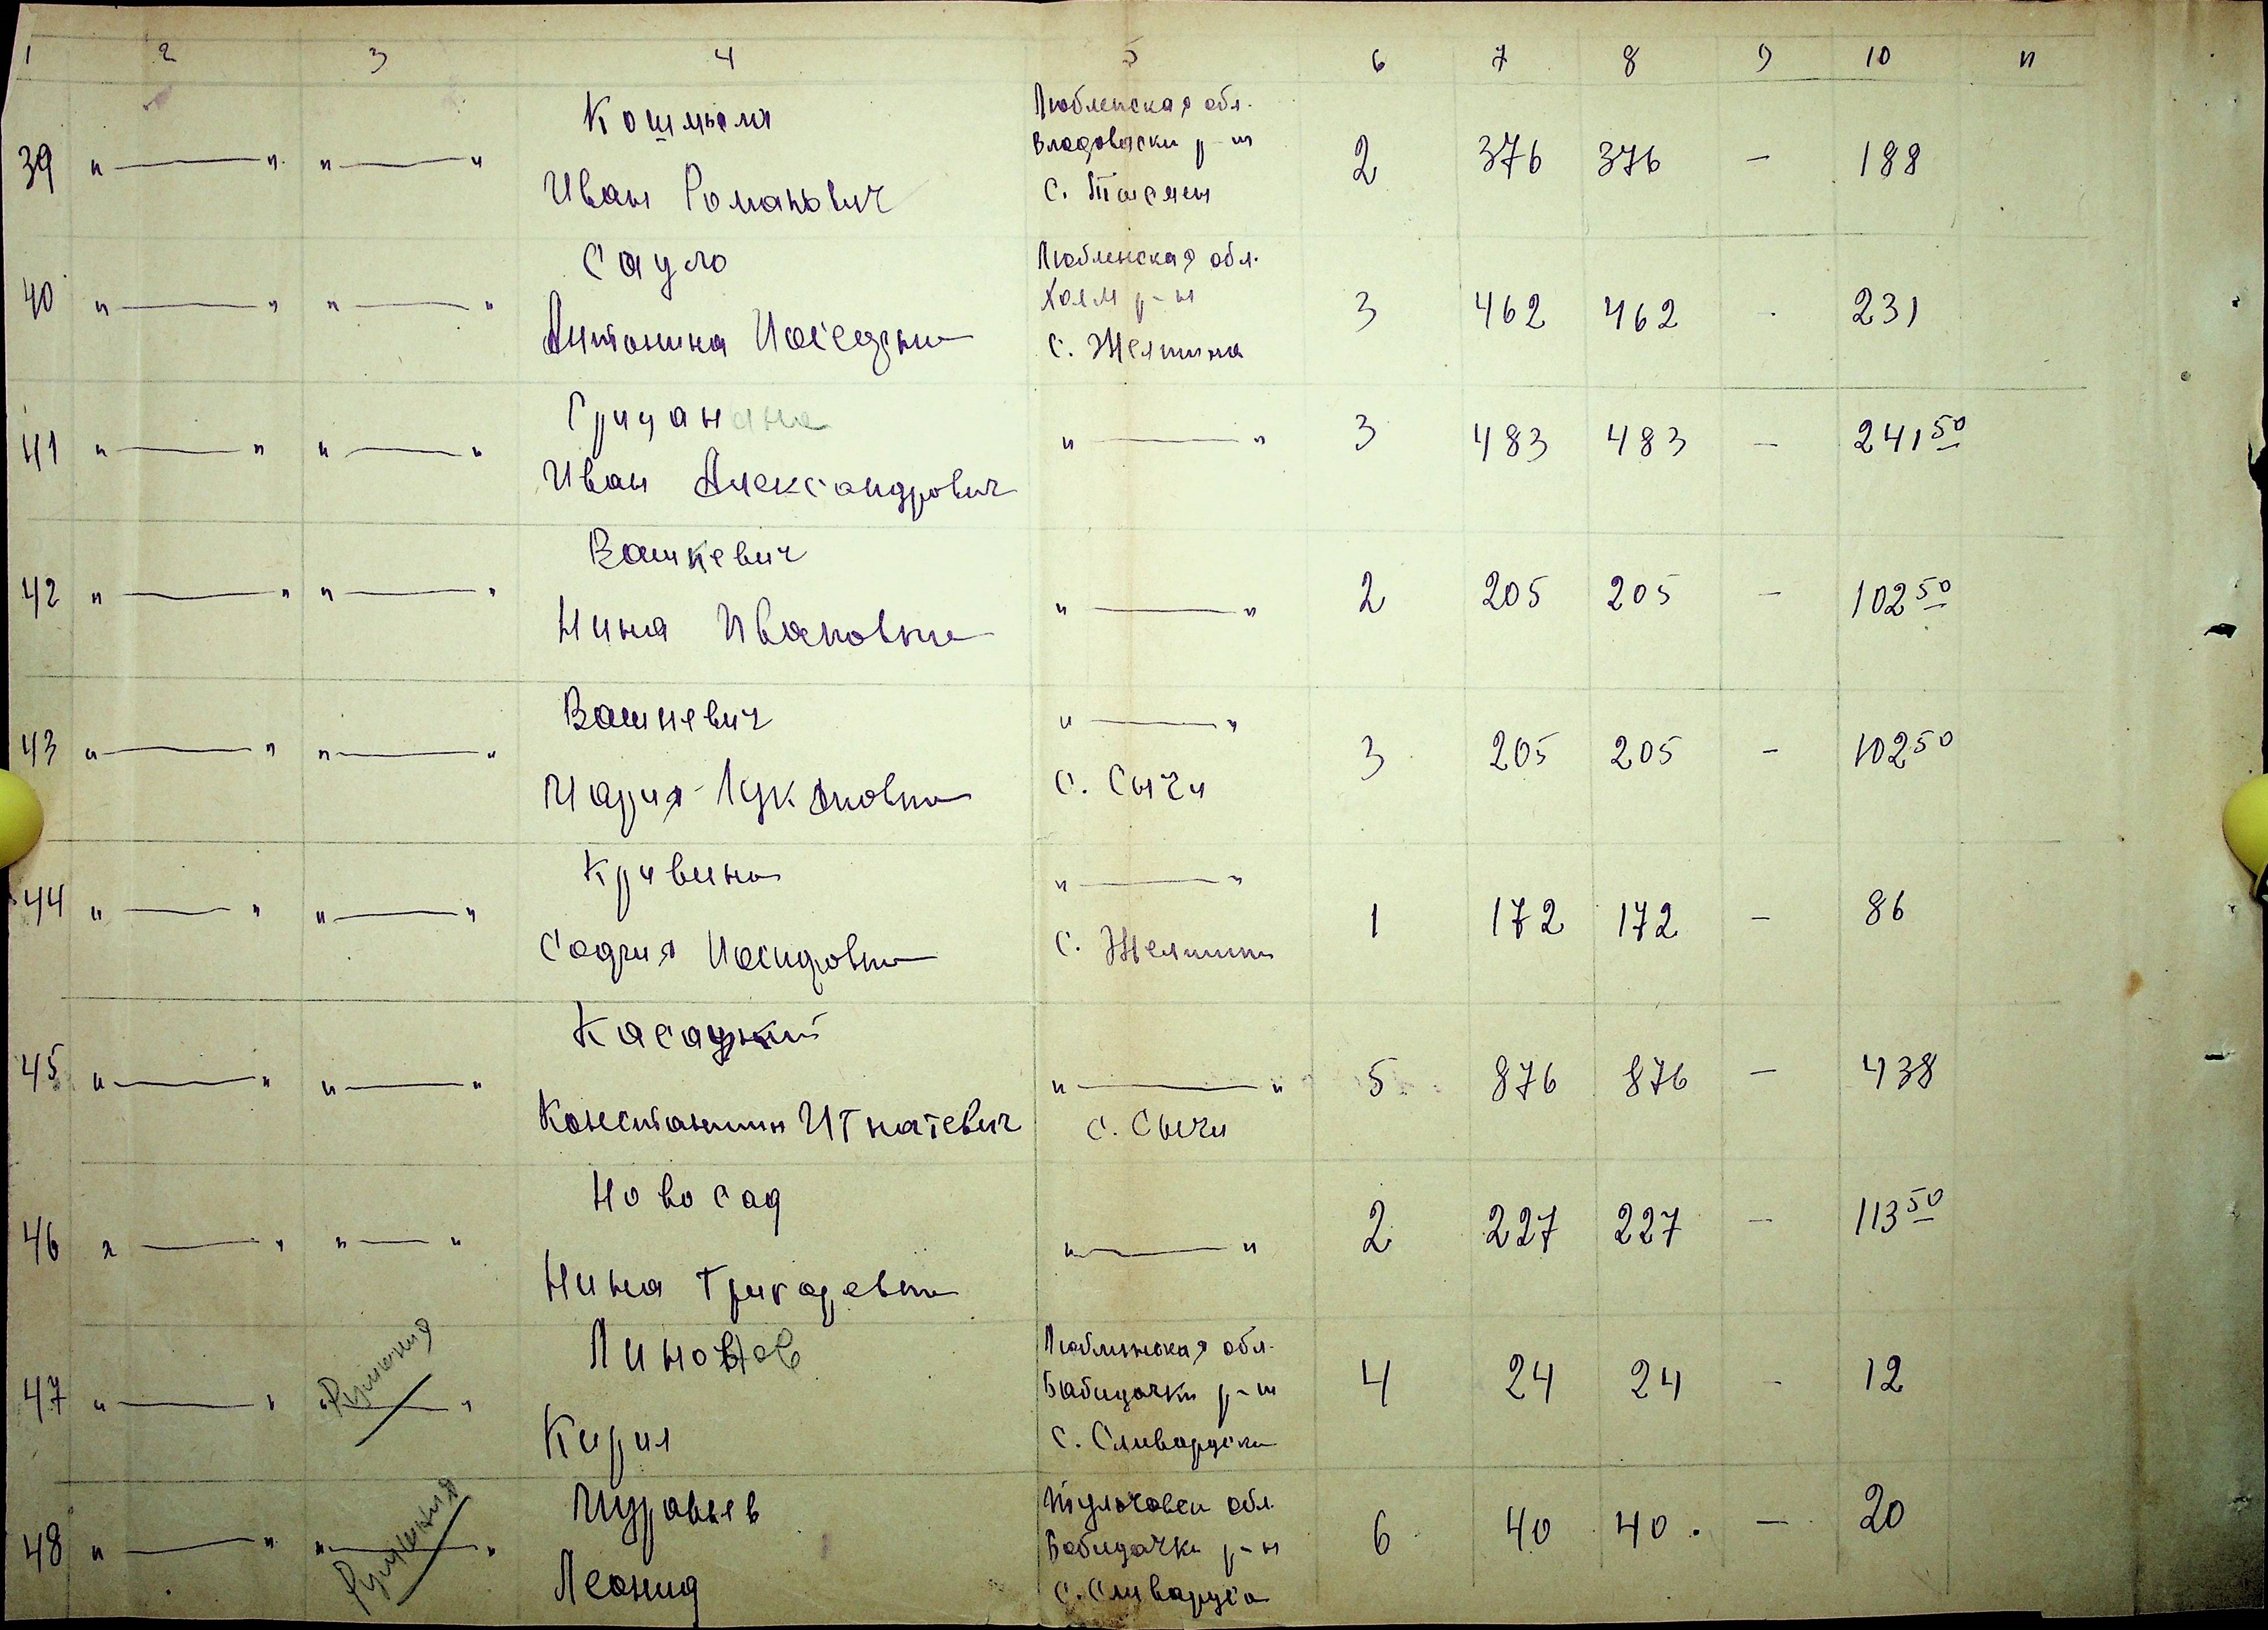 1 2 3 4 5 6 7 8 9 10 11
Кошмыля Любленская обл.
39 " — " " — " Владовски р-н 2 376 376 — 188
Иван Романович с.
Сауло Люблинская обл.
40 " — " " — " Холм р-н 3 462 462 - 231
Антонина с. Желтина
Грицан
41 " — " " — " " — " 3 483 483 — 241 50
Иван Александрович
Вашкевич
42 " — " " — " " — " 2 205 205 — 102 50
Нина Ивановна
Вашкевич " — "
43 " — " " — " 3 205 205 - 102 50
Мария Лукяновна с. Сычи
Кривина " — "
44 " — " " — " 1 172 172 — 86
София с. Желтина
Касацкий
45 " — " " — " " — " 5 876 876 — 438
Константин Игнатевич с. Сычи
Новосад
46 " — " " — " " — " 2 227 227 — 113 50
Нина
Румыния Люблинская обл.
47 " — " " — " Бабидачки р-н 4 24 24 - 12
Кирил с.
Румыния Муравьев обл.
48 " — " " — " Бабидачки р-н 6 40 40 — 20
Леонид с.